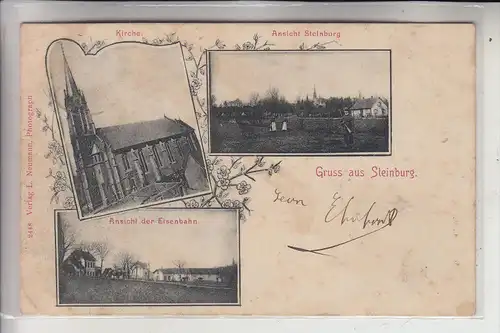 Kirche.
Ansicht Steinburg
Gruss aus Steinburg.
Ansicht der Eisenbahn
9448 Verlag L. Neumann, Photograph